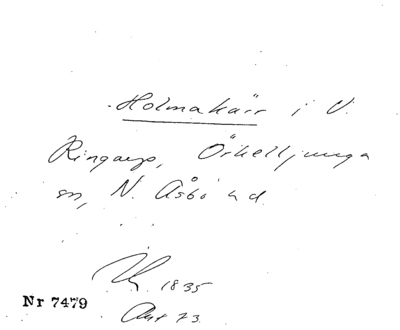 Holmakärr i V.
Ringarp, Örkelljunga
sn, N. Åsbo hd.
1835
Nr 7479
Akt 73.